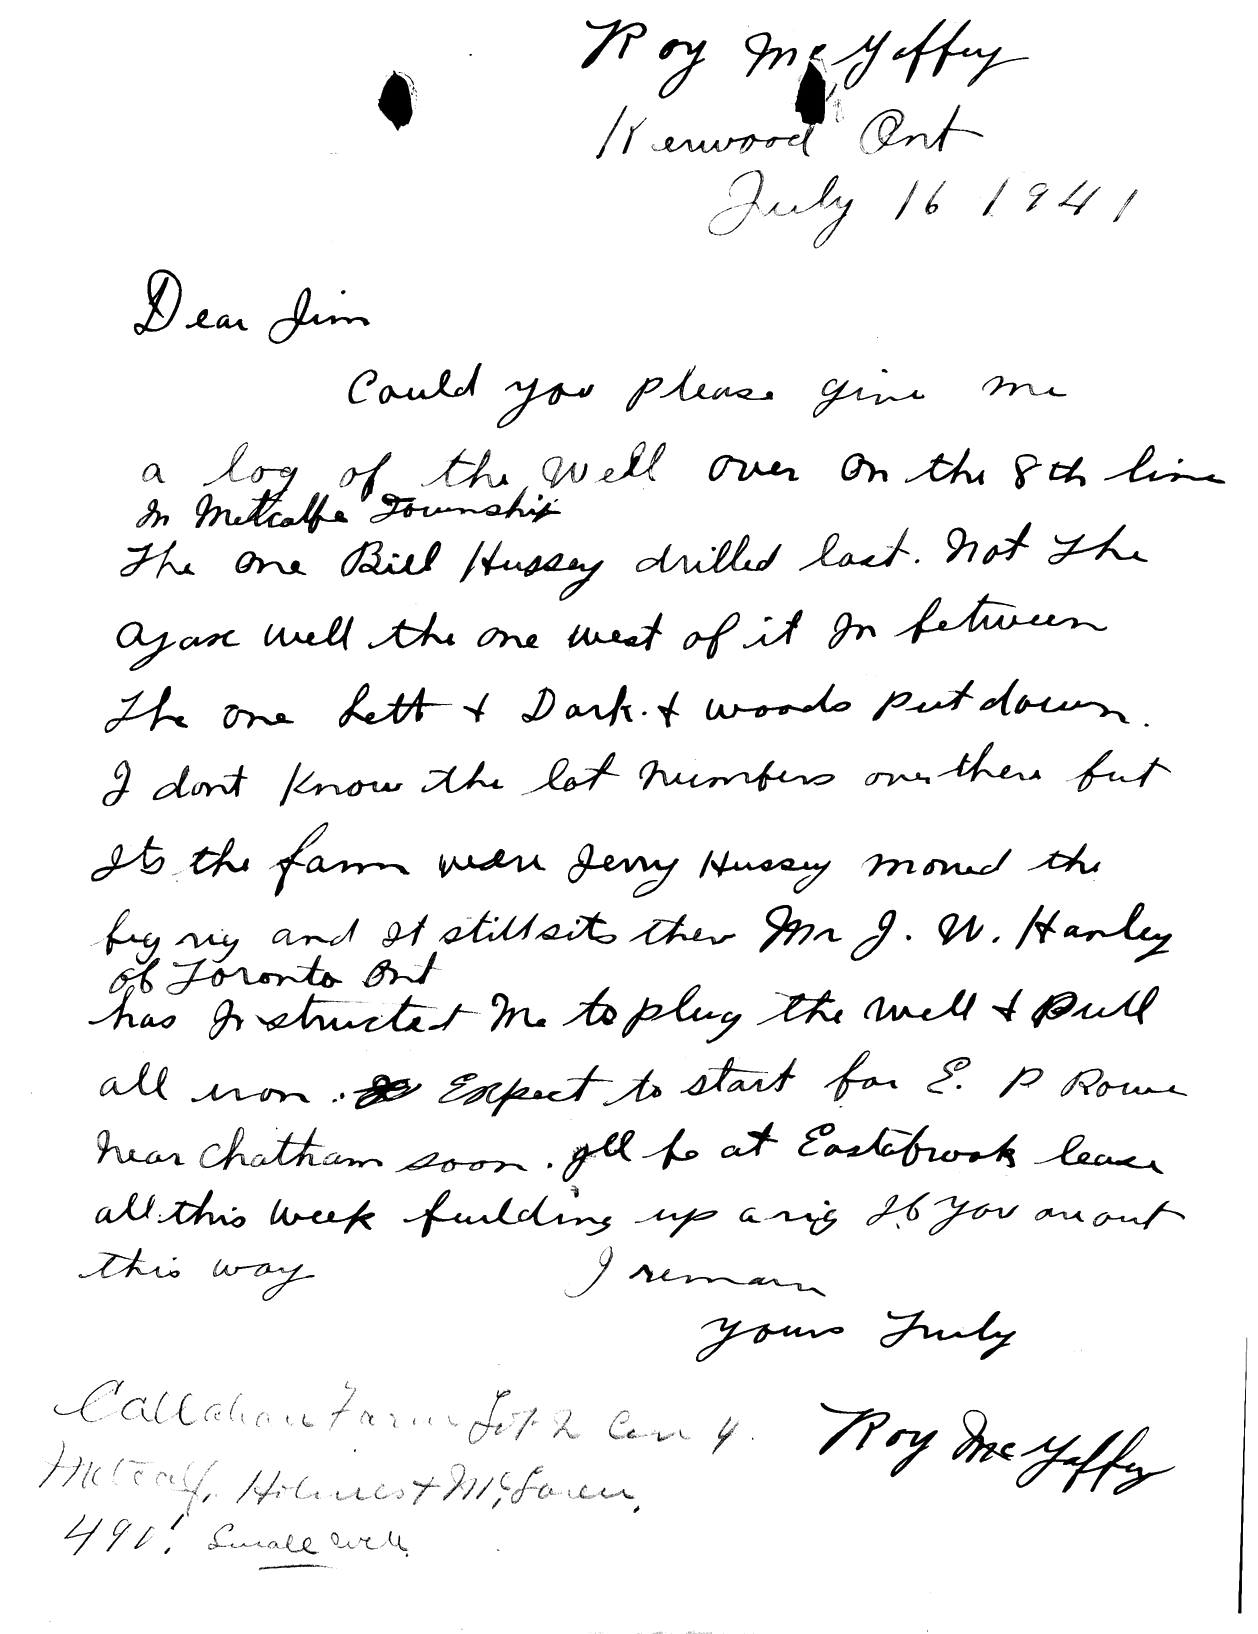 Roy McGaffey
Kerwood Ont
July 16 1941
Dear Jim
Could you please give me
a log of the well over on the 8th line
In Metcalfe Township
The one Bill Hussey drilled last. Not The
Ajax well the one west of it In between
The one Lett + Dark. + woods put down.
I dont know the lot numbers over there but
Its the farm were Jerry Hussey moved the
big rig and It still sits ther Mr J. W. Hanley
of Toronto Ont
has Instructed Me to plug the well + Pull
all iron. Expect to start for E. P Rowe
Near Chatham soon. Ill be at Eastabrook lease
all this week building up a rig If you are out
this way I remain
yours Truly
Roy McGaffey
Callahan Farm Lot 2 Con 4.
Metcalf, Holmes + McLaren,
490'. Small well.